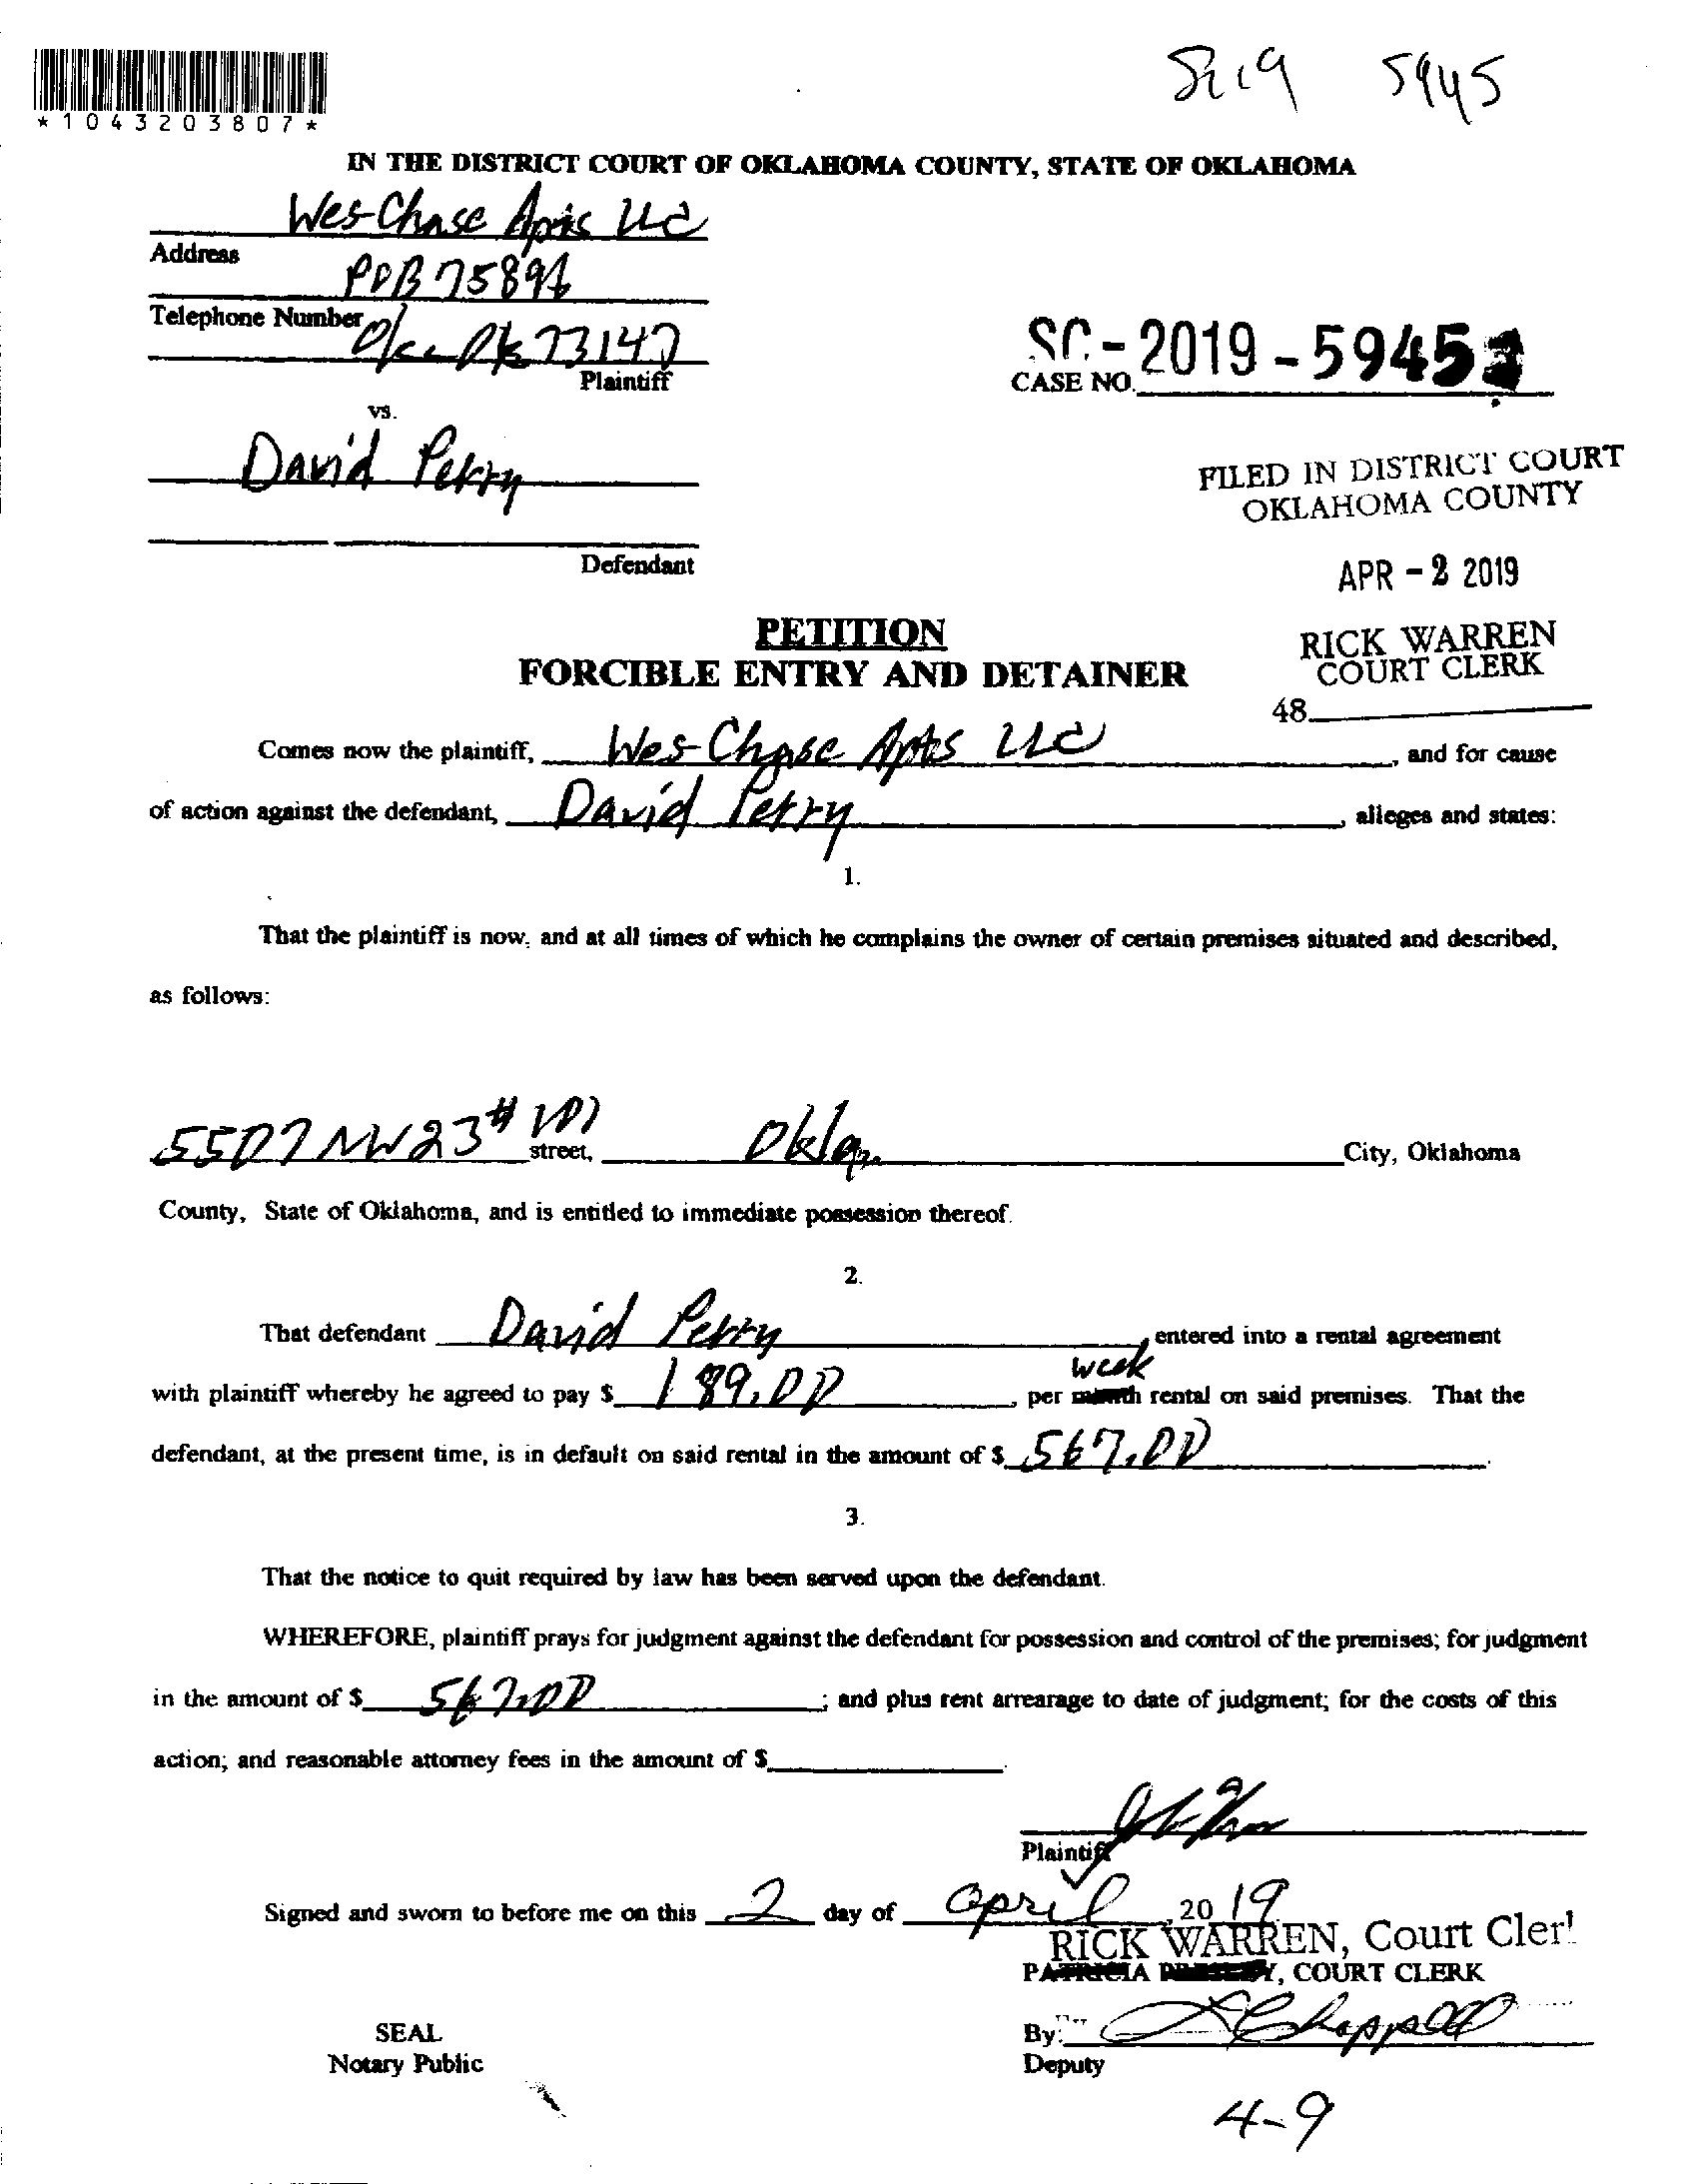 *1043203807*
SC19 5945
IN THE DISTRICT COURT OF OKLAHOMA COUNTY, STATE OF OKLAHOMA
Wes-Chase Apts LLC
Address
POB 75894
Telephone Number
Okc Ok 73147
Plaintiff
SC-2019-5945
CASE NO.
vs.
David Perry
FILED IN DISTRICT COURT
OKLAHOMA COUNTY
Defendant
APR -2 2019
PETITION
FORCIBLE ENTRY AND DETAINER
RICK WARREN
COURT CLERK
48
Comes now the plaintiff, Wes-Chase Apts LLC, and for cause
of action against the defendant, David Perry, alleges and states:
1.
That the plaintiff is now, and at all times of which he complains the owner of certain premises situated and described,
as follows:
5507 NW 23 # 101 street, Okla. City, Oklahoma
County, State of Oklahoma, and is entitled to immediate possession thereof.
2.
That defendant David Perry, entered into a rental agreement
week
with plaintiff whereby he agreed to pay $ 189.00, per month rental on said premises. That the
defendant, at the present time, is in default on said rental in the amount of $ 567.00.
3.
That the notice to quit required by law has been served upon the defendant.
WHEREFORE, plaintiff prays for judgment against the defendant for possession and control of the premises; for judgment
in the amount of $ 567.00; and plus rent arrearage to date of judgment; for the costs of this
action; and reasonable attorney fees in the amount of $
Plaintiff
Signed and sworn to before me on this 2 day of april, 2019
RICK WARREN, Court Cler
PATRICIA PRESLEY, COURT CLERK
SEAL
By: Chappell
Notary Public
Deputy
4-9